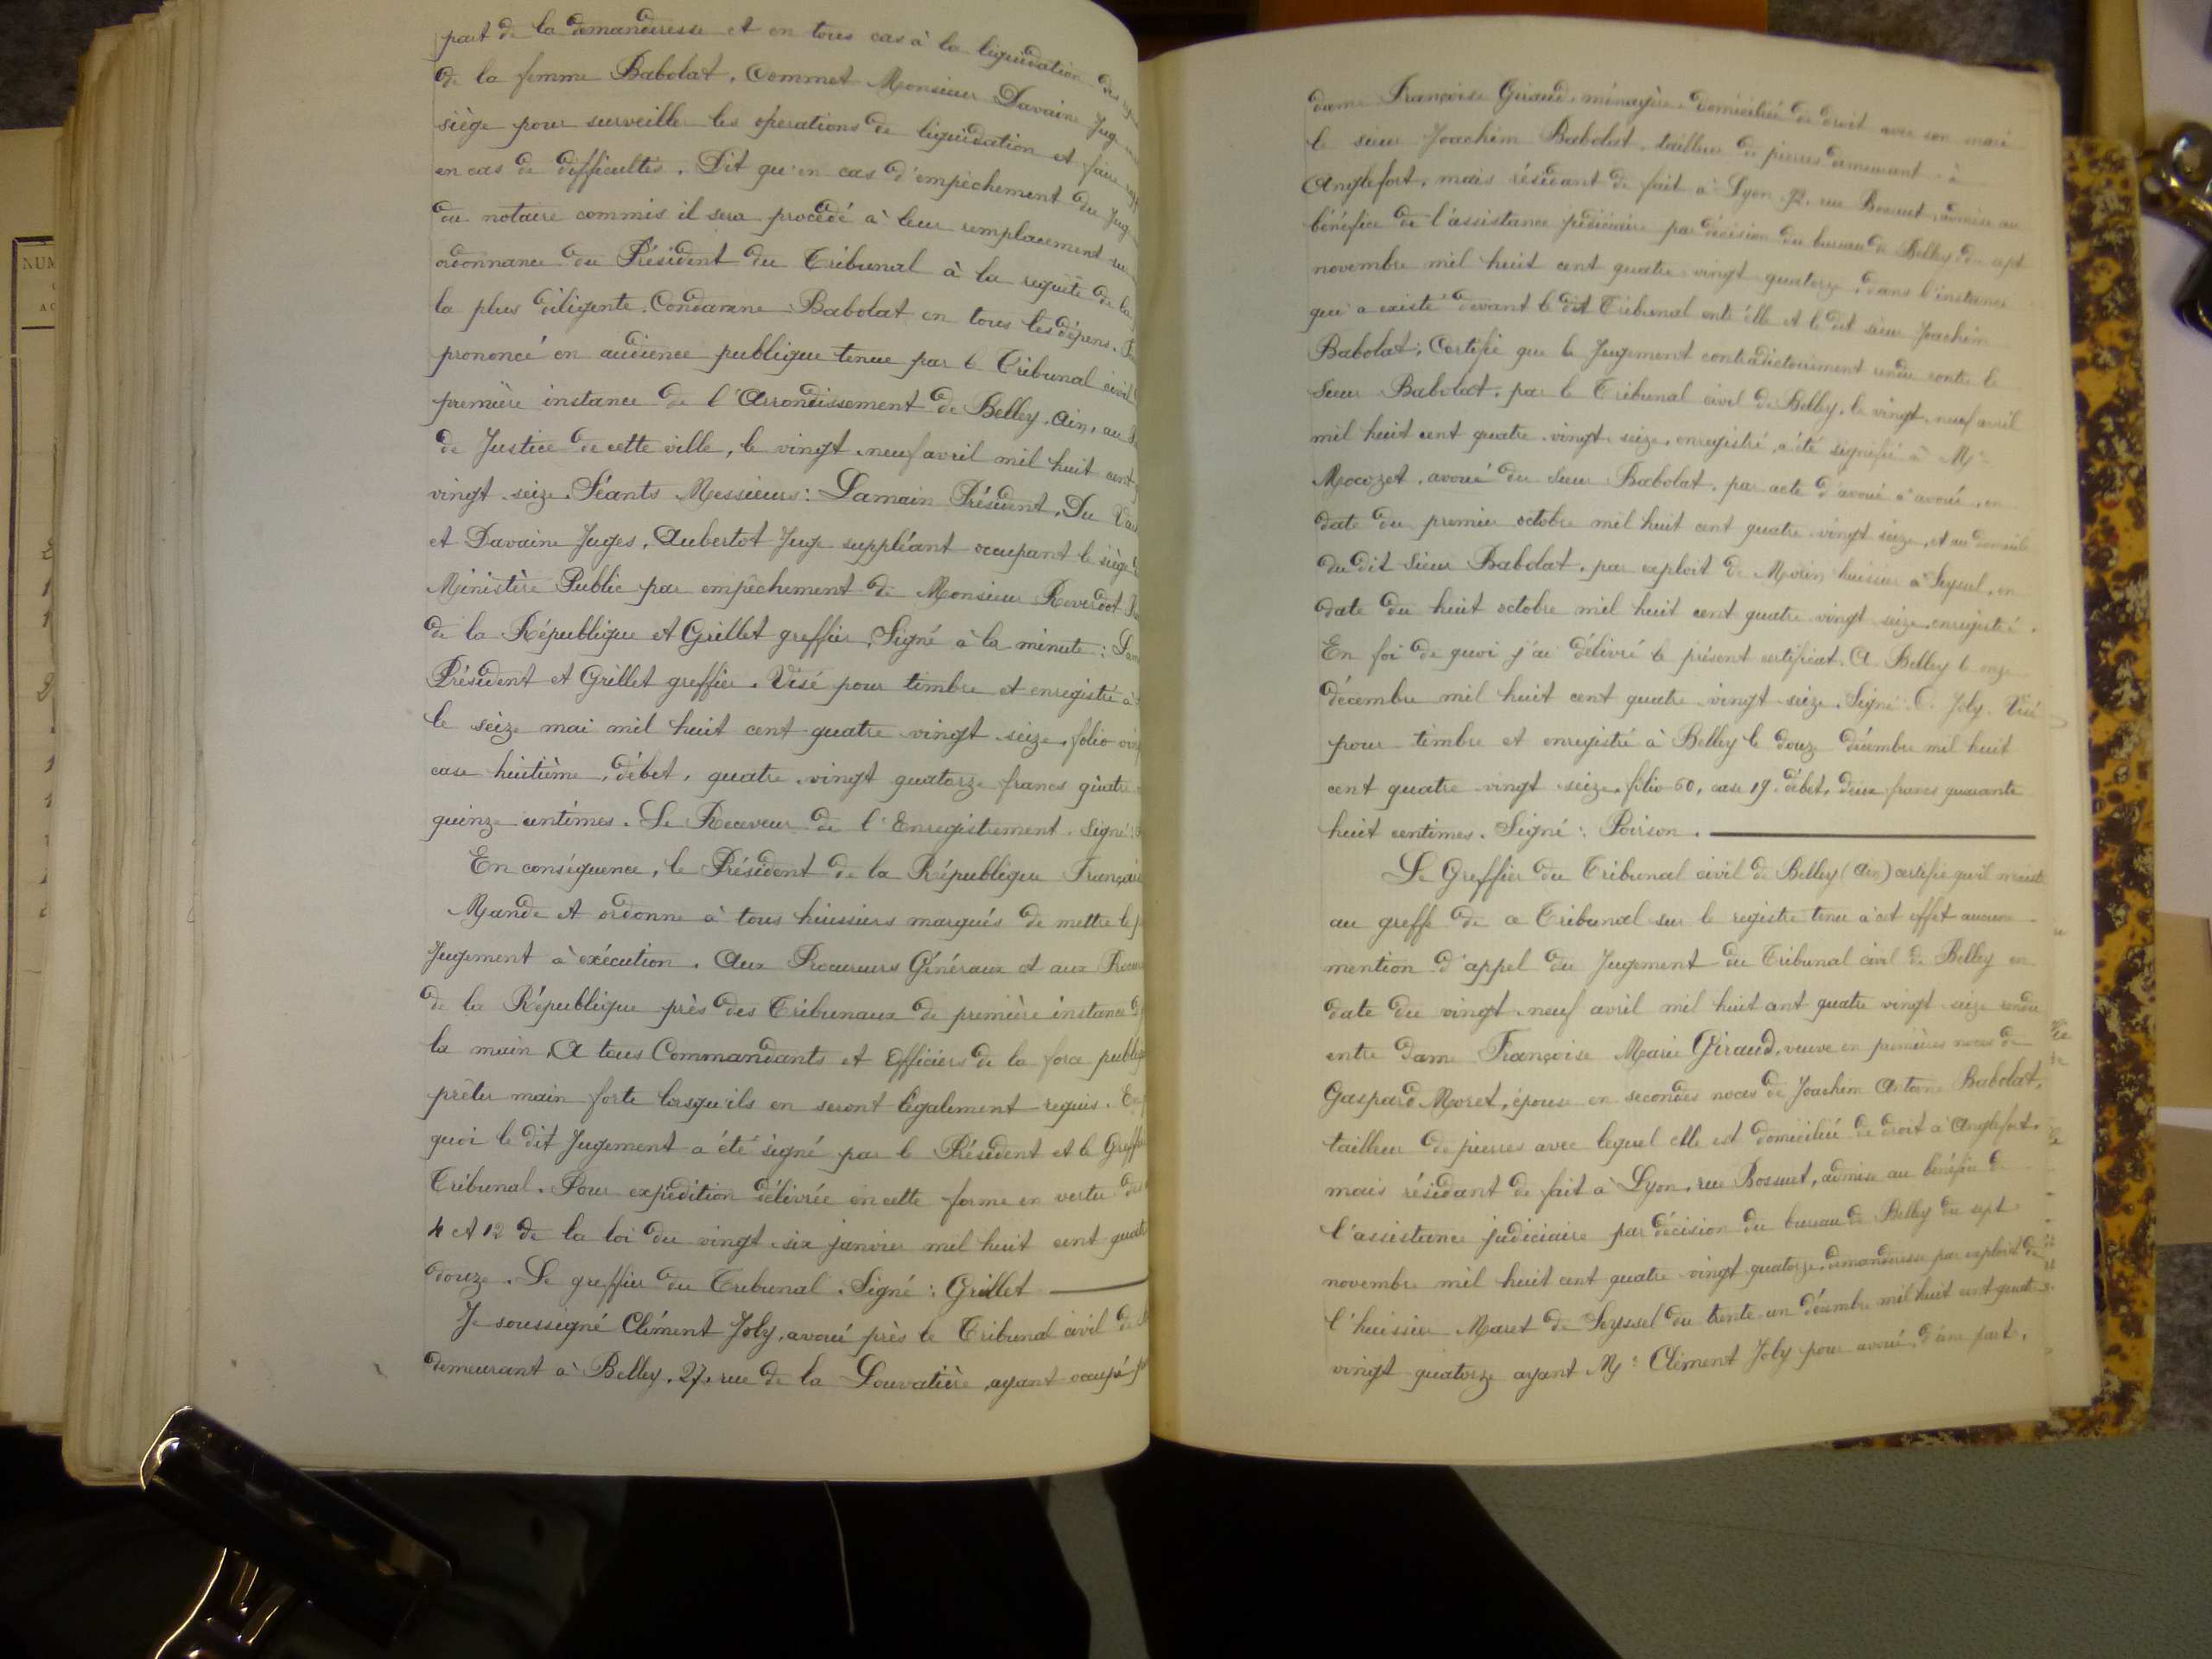 part de la demanderesse et en tous cas à la liquidation des
de la femme Babolat. Commet Monsieur Davaine Juge
siège pour surveiller les opérations de liquidation et faire
en cas de difficultés. Dit qu'en cas d'empêchement du Jug
ou notaire commis il sera procédé à leur remplacement
ordonnance du Président du Tribunal à la requête de la
la plus diligente. Condamne Babolat en tous les dépens.
prononcé en audience publique tenue par le Tribunal civil
première instance de l'Arrondissement de Belley, Ain, au
de Justice de cette ville, le vingt-neuf avril mil huit cent
vingt-seize. Séants Messieurs: Lamain Président, Du
et Davaine Juges, Aubertot Juge suppléant occupant le siège
Ministère Public par empêchement de Monsieur Reverdot
de la République et Grillet greffier. Signé à la minute:
Président et Grillet greffier. Visé pour timbre et enregistré à
le seize mai mil huit cent quatre vingt-seize, folio
case huitième, débet, quatre-vingt quatorze francs quatre
quinze centimes. Le Receveur de l'Enregistrement. Signé:
En conséquence, le Président de la République Françai
Mande et ordonne à tous huissiers marqués de mettre le
Jugement à exécution. Aux Procureurs Généraux et aux Procu
de la République près des Tribunaux de première instance
la main, A tous Commandants et Officiers de la force publi
prêter main forte lorsqu'ils en seront légalement requis.
quoi le dit Jugement a été signé par le Président et le Greffi
Tribunal. Pour expédition délivrée en cette forme en vertu
4 et 12 de la loi du vingt-six janvier mil huit cent quat
douze. Le greffier du Tribunal. Signé: Grillet
Je soussigné Clément Joly, avoué près le Tribunal civil de
demeurant à Belley, 27, rue de la Louvatière, ayant occupé
dame Françoise Giraud, ménagère, domiciliée de droit avec son mari
le sieur Joachim Babolat, tailleur de pierres demeurant à
Anglefort, mais résidant de fait à Lyon, 92, rue Bossuet, admise au
bénéfice de l'assistance judiciaire par décision du bureau de Belley du sept
novembre mil huit cent quatre vingt quatorze, dans l'instance
qui a existé devant le dit Tribunal entr'elle et le dit sieur Joachim
Babolat; Certifie que le Jugement contradictoirement rendu contre le
sieur Babolat, par le Tribunal civil de Belley, le vingt-neuf avril
mil huit cent quatre-vingt-seize, enregistré, a été signifié à Me
Mocozet, avoué du sieur Babolat, par acte d'avoué à avoué, en
date du premier octobre mil huit cent quatre vingt seize, et au domicile
du dit sieur Babolat, par exploit de Morin huissier à Seyssel, en
date du huit octobre mil huit cent quatre vingt seize enregistré.
En foi de quoi j'ai délivré le présent certificat. A Belley le onze
décembre mil huit cent quatre vingt seize. Signé: C. Joly. Visé
pour timbre et enregistré à Belley le douze décembre mil huit
cent quatre vingt seize, folio 60, case 19. débet, deux francs quarante
huit centimes. Signé: Poirson.
Le Greffier du Tribunal civil de Belley (Ain) certifie qu'il n'existe
au greffe de ce Tribunal sur le registre tenu à cet effet aucune
mention d'appel du Jugement du Tribunal civil de Belley en
date du vingt-neuf avril mil huit cent quatre vingt seize rendu
entre dame Françoise Marie Giraud, veuve en premières noces de
Gaspard Moret, épouse en secondes noces de Joachim Antoine Babolat,
tailleur de pierres avec lequel elle est domiciliée de droit à Anglefort,
mais résidant de fait à Lyon, rue Bossuet, admise au bénéfice de
l'assistance judiciaire par décision du bureau de Belley du sept
novembre mil huit cent quatre vingt quatorze, demanderesse par exploit de
l'huissier Maret de Seyssel du trente un décembre mil huit cent quatre
vingt quatorze ayant Me Clément Joly pour avoué, d'une part,